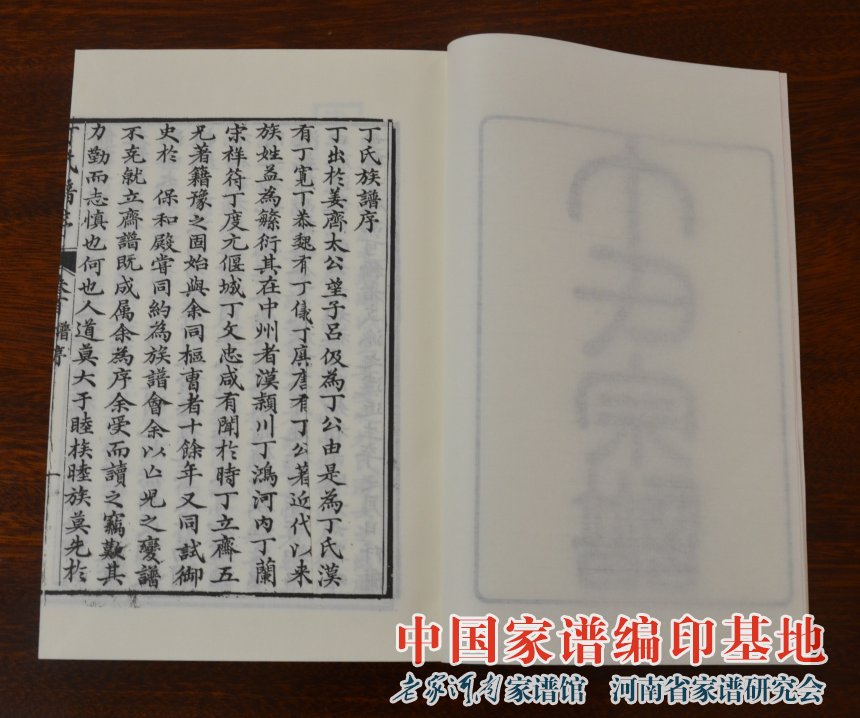 丁氏族譜序
丁出於姜齊太公望子呂伋為丁公由是為丁氏漢
有丁寬丁恭魏有丁儀丁廙唐有丁公著近代以來
族姓益為繁衍其在中州者漢潁川丁鴻河內丁蘭
宋祥符丁度元偃城丁文忠咸有聞於時丁立齋五
兄著籍豫之固始與余同樞曹者十餘年又同試御
史於 保和殿嘗同約為族譜會余以亡兒之變譜
不克就立齋譜既成属余為序余受而讀之竊歎其
力勤而志慎也何也人道莫大于睦族睦族莫先於
丁氏譜
譜序
中国家谱编印基地
老家河南家谱馆 河南省家谱研究会